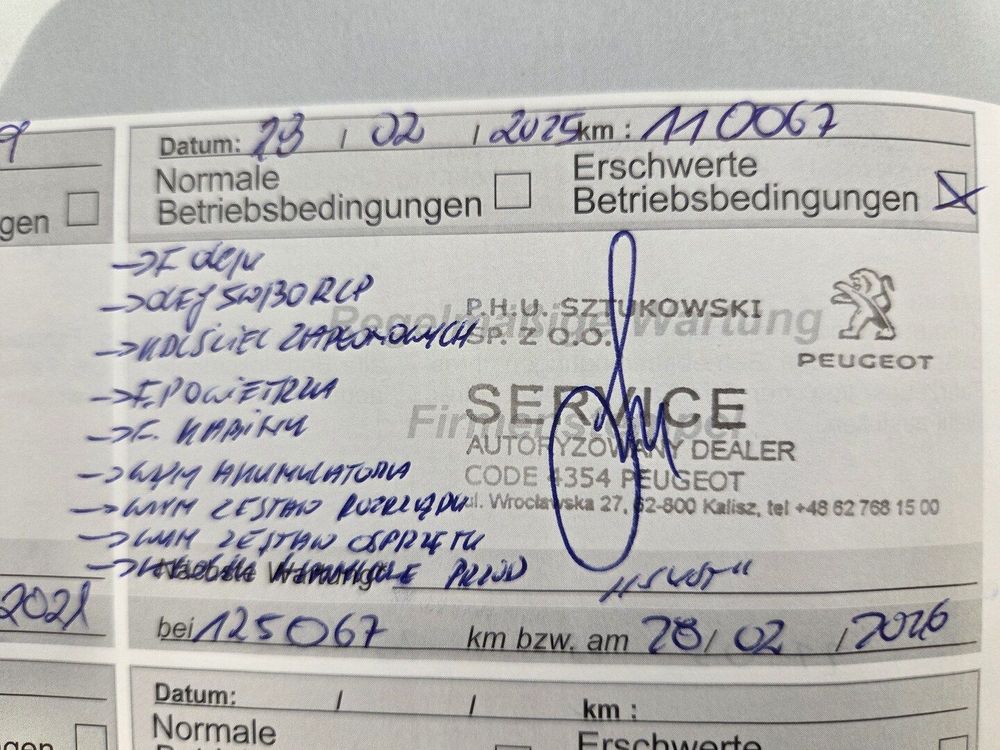 Datum: 23 / 02 / 2025 km : 110067
Normale
Betriebsbedingungen
Erschwerte
Betriebsbedingungen
gen
→ F oleju
→ OLEJ 5W/30 RCP
→ ŚWIEC ZAPŁONOWYCH
→ F. POWIETRZA
→ F. KABINY
→ WYM AKUMULATORA
→ WYM ZESTAW ROZRZĄDU
→ WYM ZESTAW OSPRZĘTU
PRZÓD
Regelmäßige Wartung
P.H.U. SZTUKOWSKI
SP. Z O.O.
SERVICE
AUTORYZOWANY DEALER
CODE 4354 PEUGEOT
ul. Wrocławska 27, 62-800 Kalisz, tel +48 62 768 15 00
PEUGEOT
Nächste Wartung
2021
bei 125067 km bzw. am 28 / 02 / 2026
Datum: / / km :
Normale
Erschwerte
gen